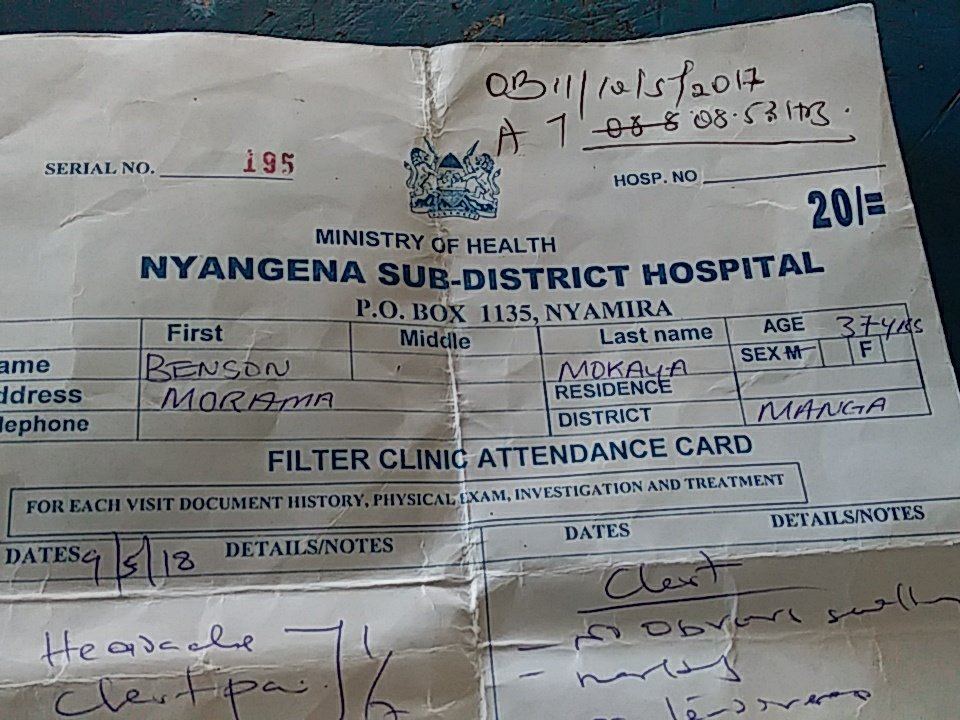 OB 11/10/5/2017
A 7 08.8 08.53 HRS.
SERIAL NO. 195
HOSP. NO
20/=
MINISTRY OF HEALTH
NYANGENA SUB-DISTRICT HOSPITAL
P.O. BOX 1135, NYAMIRA
First Middle Last name AGE 37 yrs
ame BENSON MOKAYA SEX M F
ddress MORAMA RESIDENCE
lephone DISTRICT MANGA
FILTER CLINIC ATTENDANCE CARD
FOR EACH VISIT DOCUMENT HISTORY, PHYSICAL EXAM, INVESTIGATION AND TREATMENT
DATES 9/5/18 DETAILS/NOTES DATES DETAILS/NOTES
Headache
Chest pai
Chest
- no obvious swellin